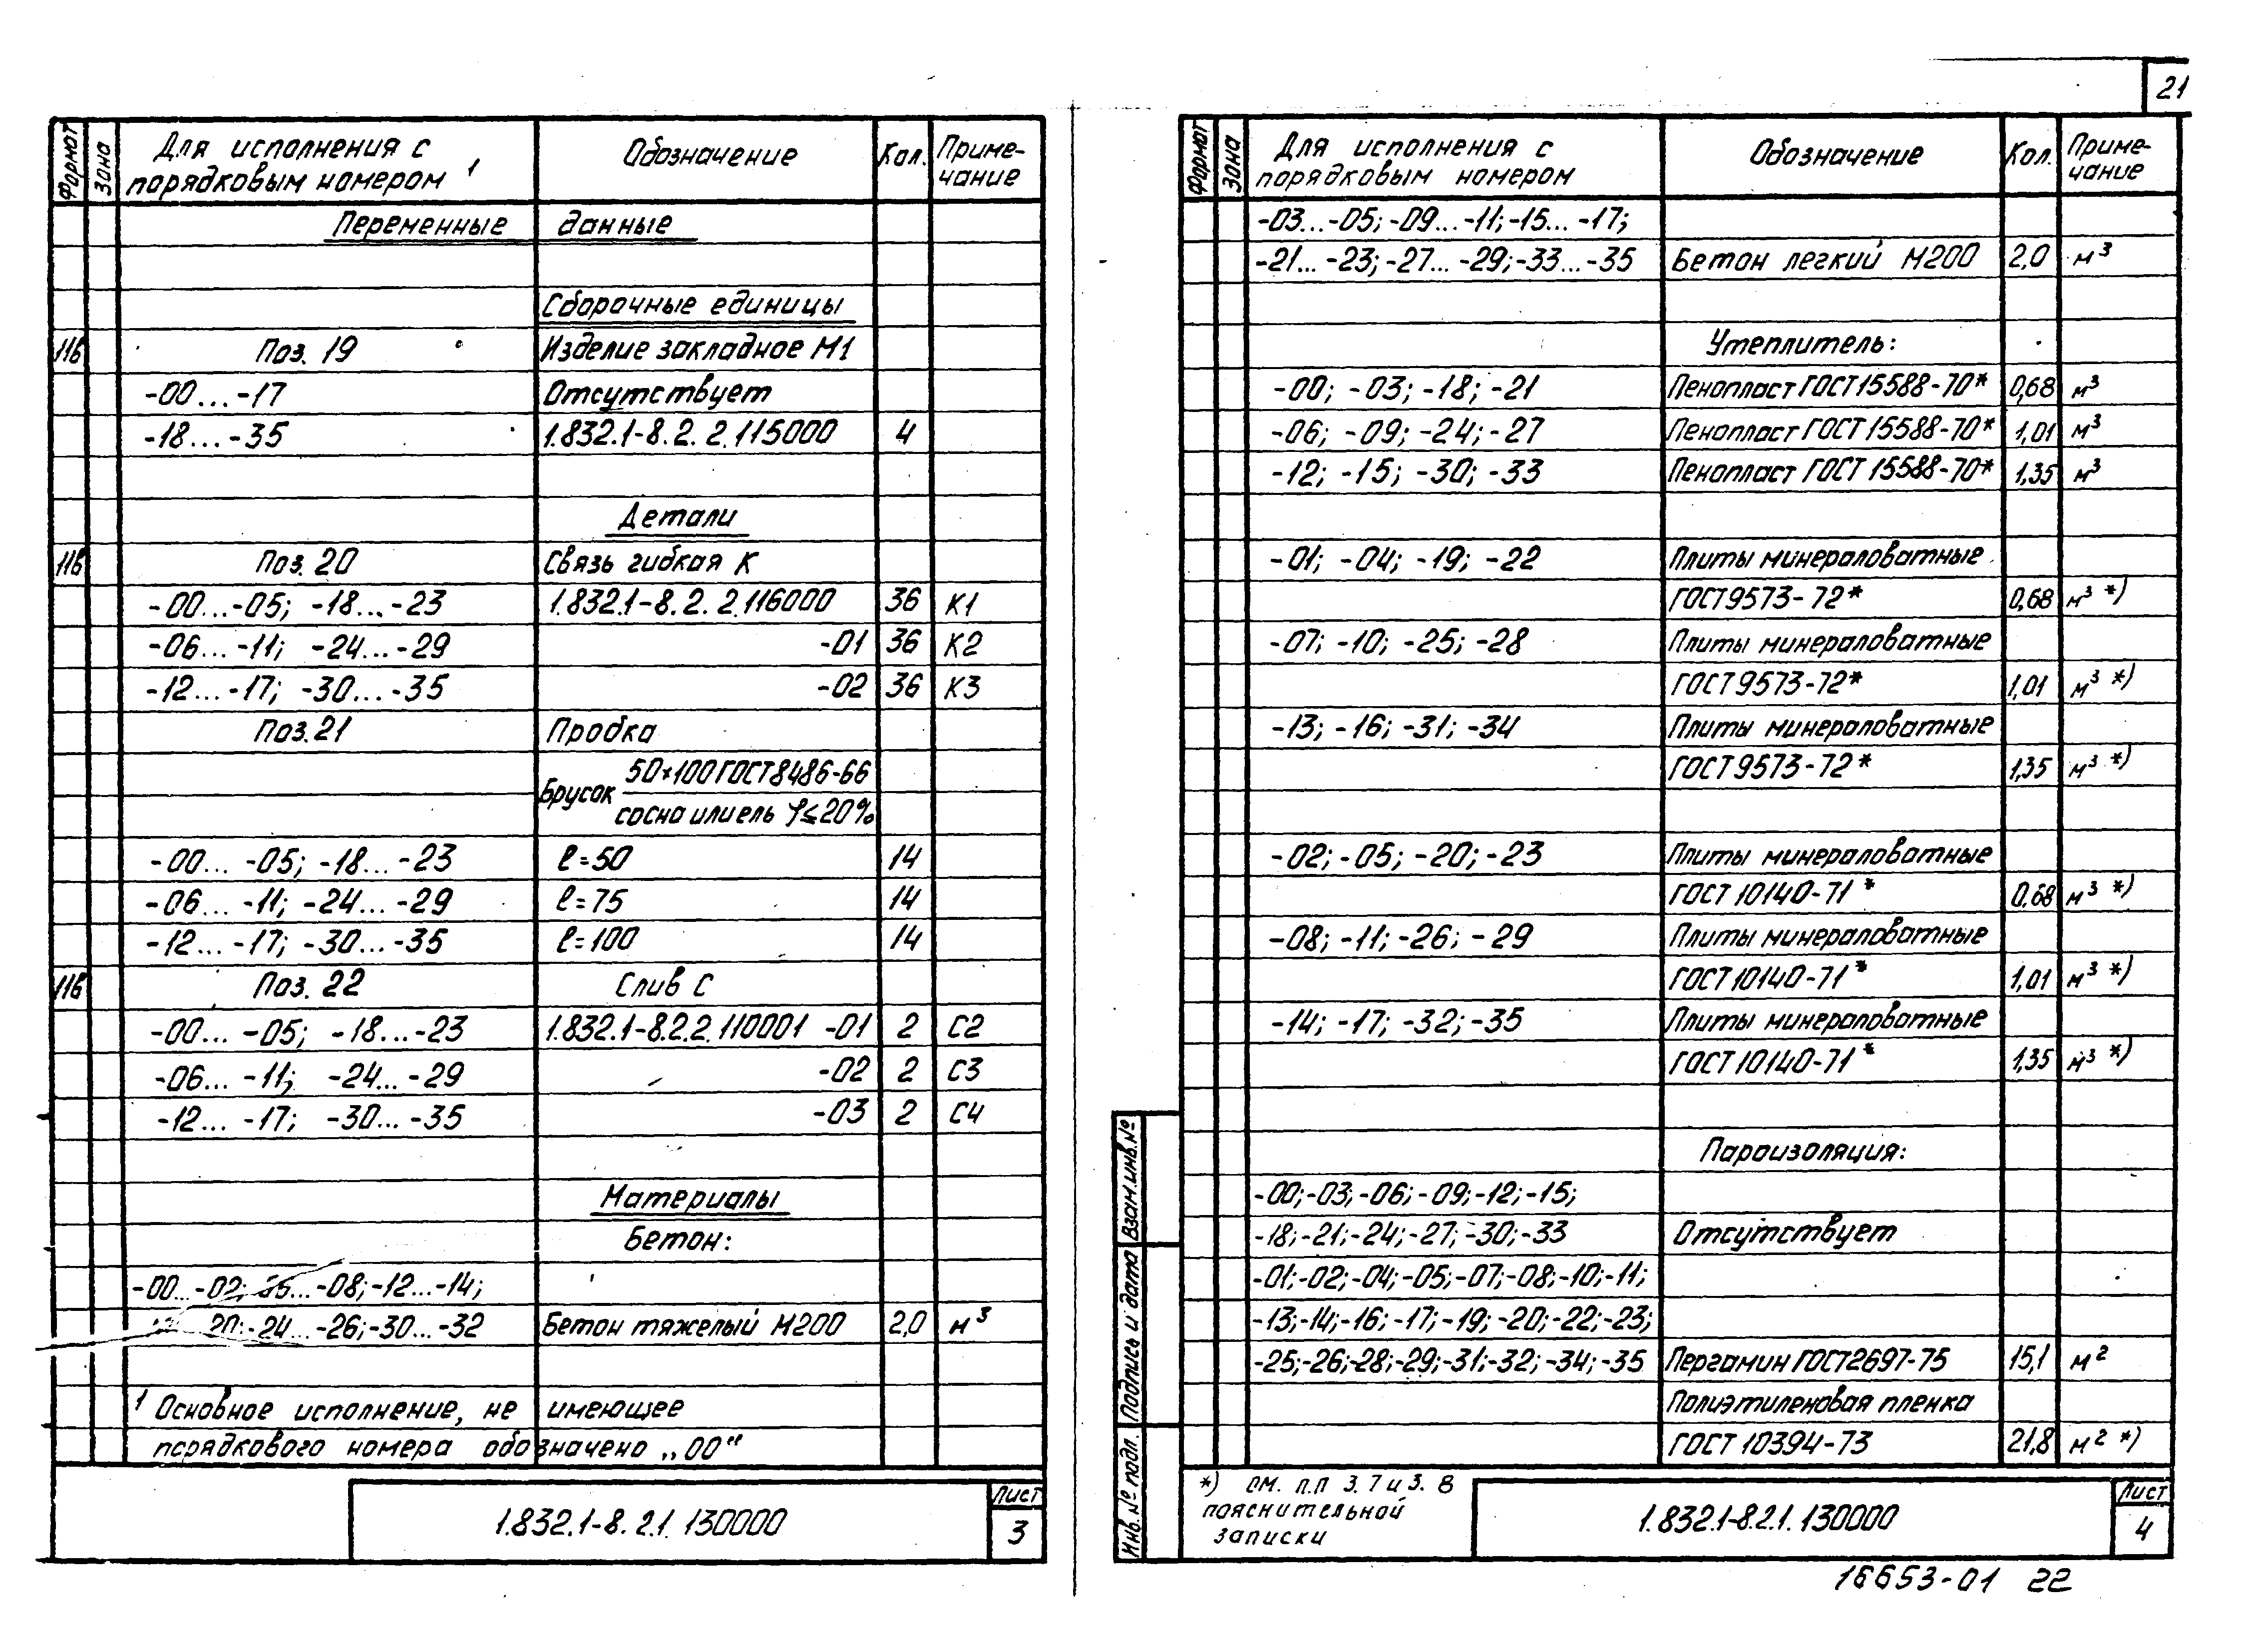 21
Формат Зона Для исполнения с порядковым номером 1 Обозначение Кол. Приме-чание
Переменные данные
Сборочные единицы
11в Поз. 19 Изделие закладное М1
-00...-17 Отсутствует
-18...-35 1.832.1-8.2.2.115000 4
Детали
11в Поз. 20 Связь гибкая К
-00...-05; -18...-23 1.832.1-8.2.2.116000 36 К1
-06...-11; -24...-29 -01 36 К2
-12...-17; -30...-35 -02 36 К3
Поз. 21 Пробка
Брусок 50×100 ГОСТ 8486-66
сосна или ель φ≤20%
-00...-05; -18...-23 ℓ=50 14
-06...-11; -24...-29 ℓ=75 14
-12...-17; -30...-35 ℓ=100 14
11в Поз. 22 Слив С
-00...-05; -18...-23 1.832.1-8.2.2.110001 -01 2 С2
-06...-11; -24...-29 -02 2 С3
-12...-17; -30...-35 -03 2 С4
Материалы
Бетон:
-00...-02; ...-08; -12...-14;
-24...-26; -30...-32 Бетон тяжелый М200 2,0 м³
1 Основное исполнение, не имеющее
порядкового номера обозначено „00“
1.832.1-8.2.1.130000 Лист 3
Формат Зона Для исполнения с порядковым номером Обозначение Кол. Приме-чание
-03...-05; -09...-11; -15...-17;
-21...-23; -27...-29; -33...-35 Бетон легкий М200 2,0 м³
Утеплитель:
-00; -03; -18; -21 Пенопласт ГОСТ 15588-70* 0,68 м³
-06; -09; -24; -27 Пенопласт ГОСТ 15588-70* 1,01 м³
-12; -15; -30; -33 Пенопласт ГОСТ 15588-70* 1,35 м³
-01; -04; -19; -22 Плиты минераловатные
ГОСТ 9573-72* 0,68 м³ *)
-07; -10; -25; -28 Плиты минераловатные
ГОСТ 9573-72* 1,01 м³ *)
-13; -16; -31; -34 Плиты минераловатные
ГОСТ 9573-72* 1,35 м³ *)
-02; -05; -20; -23 Плиты минераловатные
ГОСТ 10140-71* 0,68 м³ *)
-08; -11; -26; -29 Плиты минераловатные
ГОСТ 10140-71* 1,01 м³ *)
-14; -17; -32; -35 Плиты минераловатные
ГОСТ 10140-71* 1,35 м³ *)
Пароизоляция:
-00; -03; -06; -09; -12; -15;
-18; -21; -24; -27; -30; -33 Отсутствует
-01; -02; -04; -05; -07; -08; -10; -11;
-13; -14; -16; -17; -19; -20; -22; -23;
-25; -26; -28; -29; -31; -32; -34; -35 Пергамин ГОСТ 2697-75 15,1 м²
Полиэтиленовая пленка
ГОСТ 10394-73 21,8 м² *)
*) см. п.п 3.7 и 3.8
пояснительной
записки
1.832.1-8.2.1.130000 Лист 4
Инв. № подл. Подпись и дата Взам. инв. №
16653-01 22